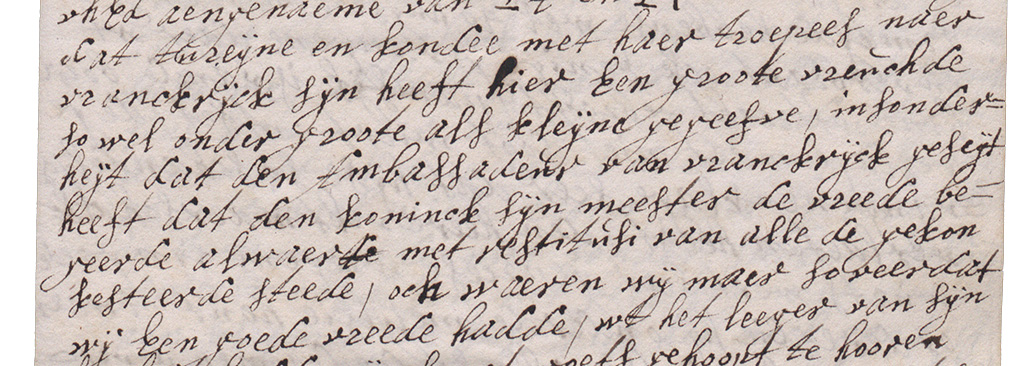 aengenaeme van 14 en 21
dat tureyne en kondee met haer troepees naer
vranckrijck sijn heeft hier een groote vreuchde
so wel onder groote als kleijne gegeefve, insonder=
heijt dat den Embassadeur van vranckrijck geseijt
heeft dat den koninck sijn meester de vreede be=
geerde alwaerde met restitusi van alle de gekon
kesteerde steede, och waeren wij maer so veer dat
wij een goede vreede hadde, wt het leeger van sijn
gehoopt te hooren